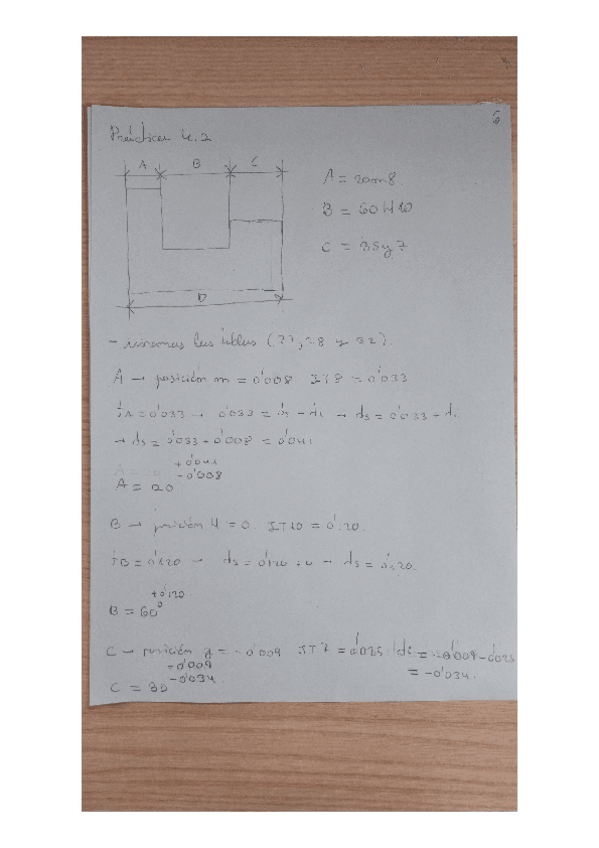 6
Práctica 4.2
A B C
A = 20m8.
B = 60H10
C = 35g7
D
- usaremos las tablas (27, 28 y 32).
A → posición m = 0'008 IT8 = 0'033
tA = 0'033 → 0'033 = ds - di → ds = 0'033 + di
→ ds = 0'033 + 0'008 = 0'041
+0'041
A = 20 -0'008
B → posición H = 0. IT10 = 0'120.
tB = 0'120 → ds = 0'120 + 0 → ds = 0'120.
+0'120
B = 60 0
C → posición g = -0'009 IT7 = 0'025 di = -0'009 - 0'025
-0'009 = -0'034.
C = -0'034